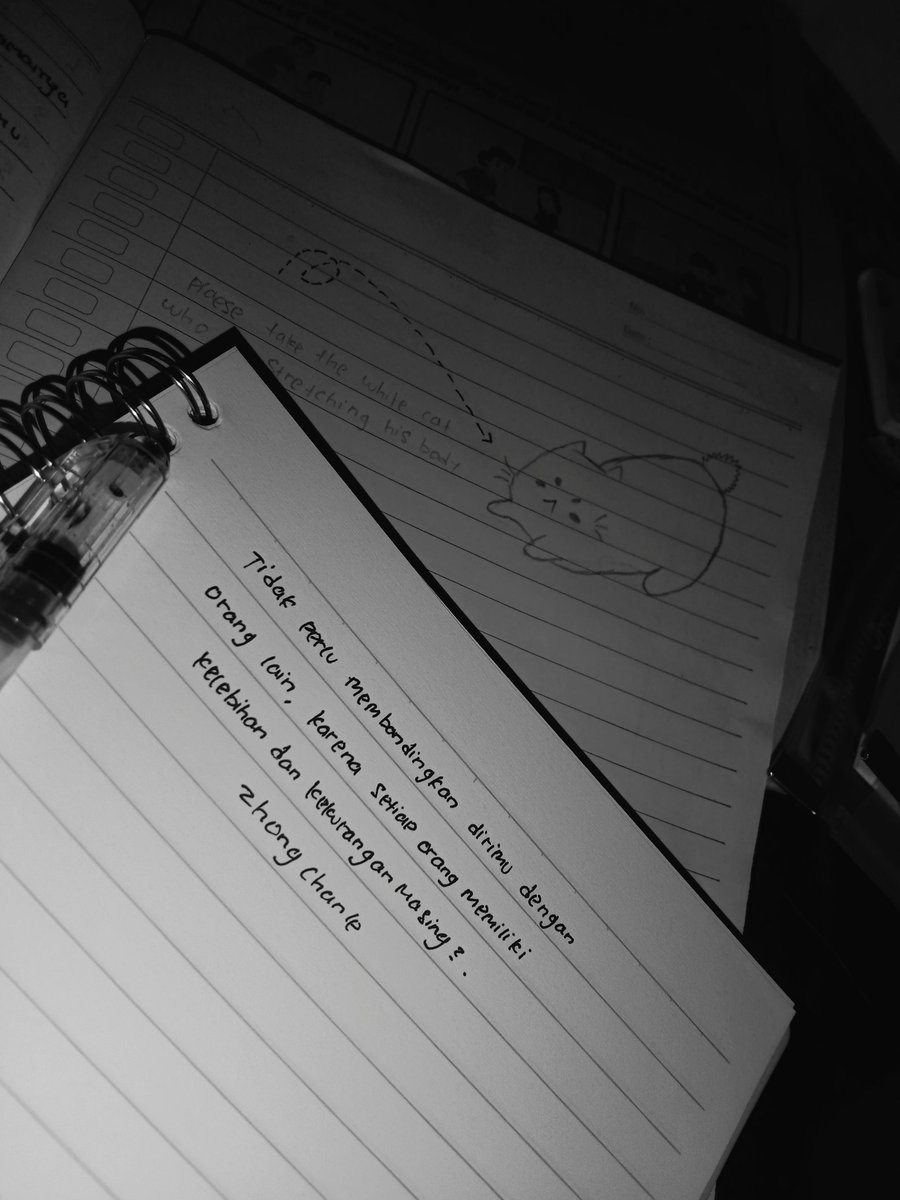 Tidak perlu membandingkan dirimu dengan
orang lain, karena setiap orang memiliki
kelebihan dan kekurangan masing2.
Zhong Chenle
plaese take the while cat
who stretching his body
No.